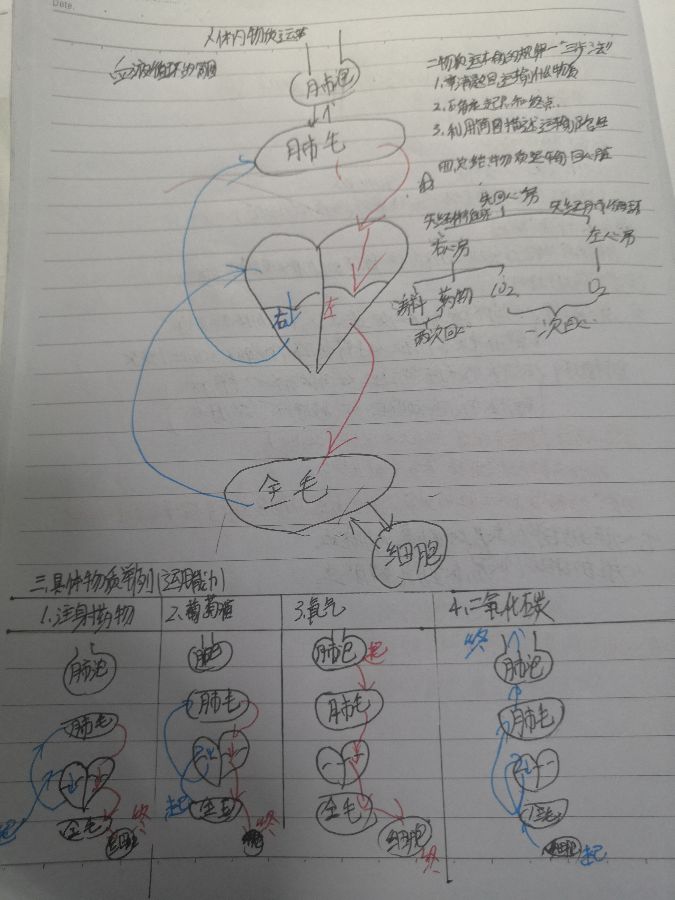 Date.
人体内物质运输
血液循环的简图
肺泡
肺毛
二.物质运输的规律一"三步法"
1.审清题目运输什么物质
2.确定起点和终点.
3.利用简图描述运输路径
四.总结:物质运输回心脏
先回心房
先经体循环
先经肺循环
右心房
左心房
养料 药物 CO2
O2
两次回心
一次回心
右
左
全毛
细胞
三.具体物质举例(运用能力)
1.注射药物
2.葡萄糖
3.氧气
4.二氧化碳
肺泡
肺毛
全毛
起
细胞
终
肺毛
起
终
肺泡
起
肺毛
全毛
细胞
终
终
肺泡
肺毛
细胞
起